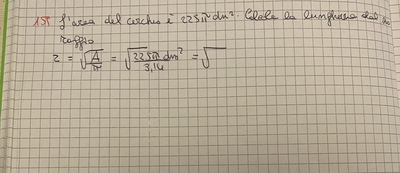 155 L'area del cerchio è 225π dm². Calcola la lunghezza del suo
raggio
r = √A/π = √225π dm²/3,14 = √